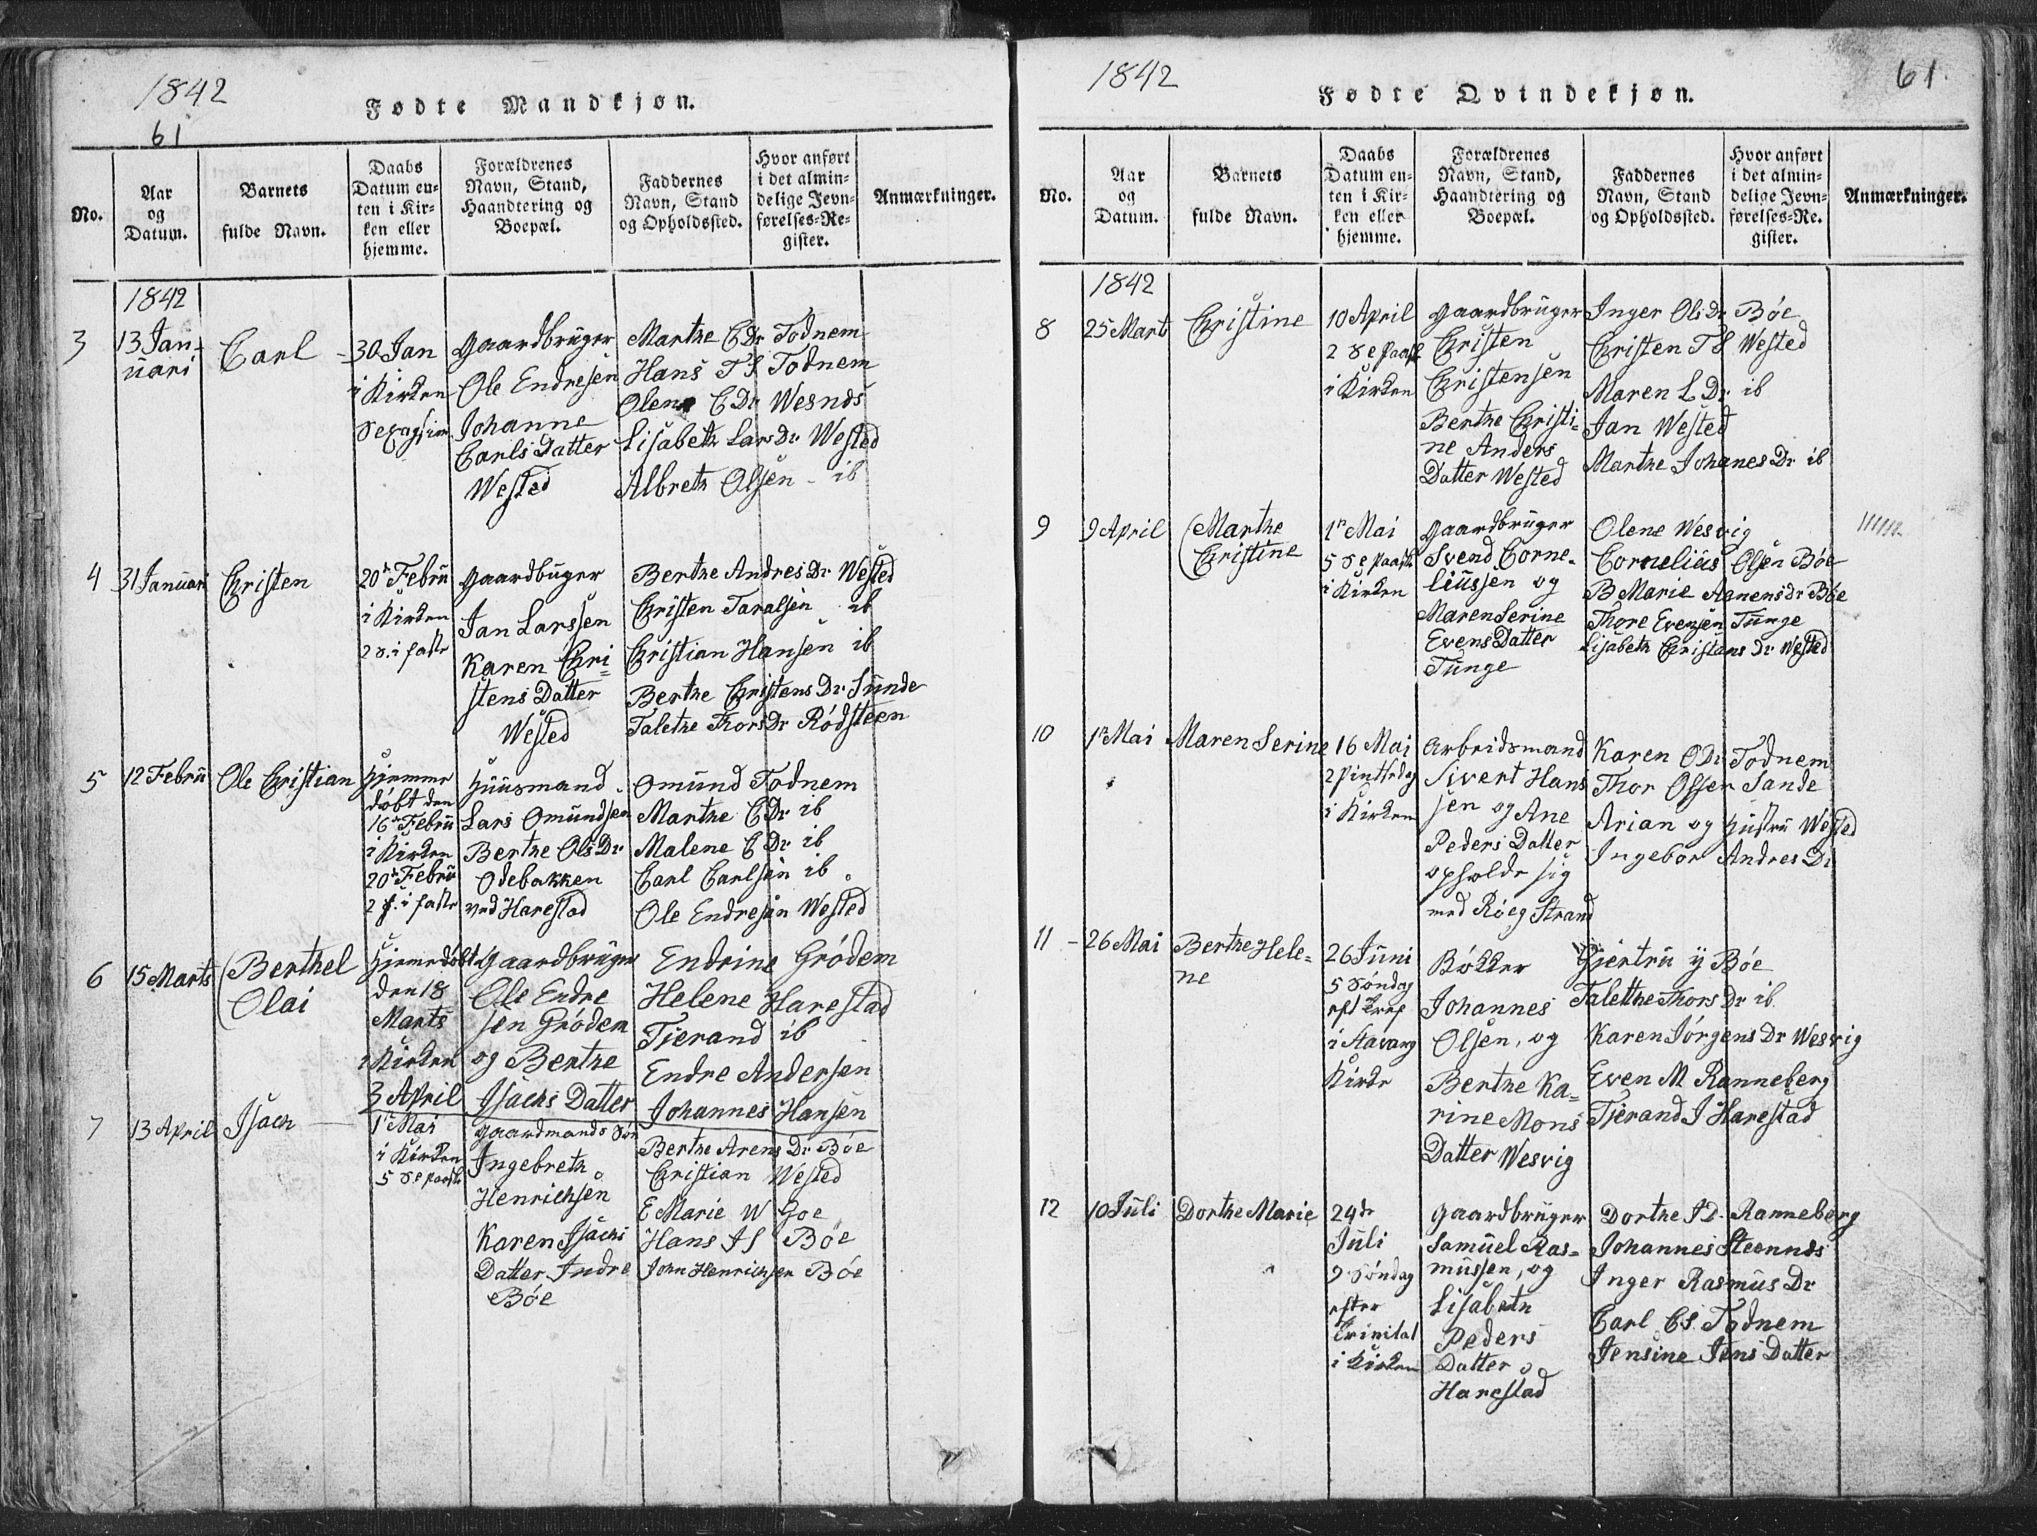 1842
61
Fødte Mandkjøn.
No.
Aar
og
Datum.
Barnets
fulde Navn.
Daabs
Datum en-
ten i Kir-
ken eller
hjemme.
Forældrenes
Navn, Stand,
Haandtering og
Boepæl.
Faddernes
Navn, Stand
og Opholdssted.
Hvor anført
i det almin-
delige Jevn-
førelses-Re-
gister.
Anmærkninger.
1842
3
13 Jan-
uari
Carl
30 Jan
i Kirken
Gaardbruger
Ole Endresen
Johanne
Carls Datter
Wested
Marthe C Dr Todnem
Hans T S Todnem
Olene C Dr Wesnes
Lisabeth Lars Dr Wested
Albreth Olsen - ib
4
31 Januari
Christen
20de Febru
i Kirken
2 S. i faste
Gaardbuger
Jan Larssen
Karen Chri
stens Datter
Wested
Berthe Andres Dr Wested
Christen Taralsen ib
Christian Hansen ib
Berthe Christens Dr Sunde
Talethe Thors Dr Rødsteen
5
12 Febru
Ole Christian
Hjemme
døbt den
16de Febru
i Kirken
20de Febru
2 S. i faste
Huusmand
Lars Omundsen
Berthe Ols Dr
Odebakken
ved Harestad
Omund Todnem
Marthe C Dr ib
Malene C Dr ib
Carl Carlsen ib
Ole Endresen Wested
6
15 Marts
Berthel
Olai
Hjemedøbt
den 18
Marts
i Kirken
3 April
Gaardbruger
Ole Endre
sen Grødem
og Berthe
Isachs Datter
Endrine Grødem
Helene Harestad
Tjerand ib
Endre Andersen
Johannes Hansen
7
13 April
Isach
1te Mai
i Kirken
5 S e paaske
Gaardmands Søn
Ingebreth
Henrichsen
Karen Isachs
Datter Indre
Bøe
Berthe Arens Dr Bøe
Christian Wested
E Marie W Goe
Hans I S Bøe
John Henrichsen Bøe
1842
61
Fødte Qvindekjøn.
No.
Aar
og
Datum.
Barnets
fulde Navn.
Daabs
Datum en-
ten i Kir-
ken eller
hjemme.
Forældrenes
Navn, Stand,
Haandtering og
Boepæl.
Faddernes
Navn, Stand
og Opholdssted.
Hvor anført
i det almin-
delige Jevn-
førelses-Re-
gister.
Anmærkninger.
1842
8
25 Mart
Christine
10 April
2 S e paask
i Kirken
Gaardbruger
Christen
Christensen
Berthe Christi-
ne Anders
Datter Wested
Inger Ols Dr Bøe
Christen T S Wested
Maren L Dr ib
Jan Wested
Marthe Johanes Dr ib
9
9 April
Marthe
Christine
1te Mai
5 S e paask
i Kirken
Gaardbruger
Svend Corne-
liussen og
Maren Serine
Evens Datter
Tunge
Olene Wesvig
Cornelius Olsen Bøe
B Marie Aanensdr Bøe
Thore Evensen Tunge
Lisabeth Christians Dr Wested
10
1te Mai
Maren Serine
16 Mai
2 Pintsedag
i Kirken
Arbeidsmand
Sivert Hans
sen og Ane
Peders Datter
opholde sig
med Røeg Strand
Karen O Dr Todnem
Thor Olsen Sande
Arian og Hustru Wested
Ingebor Andres Dr
11
26 Mai
Berthe Hele-
ne
26 Juni
5 Søndag
eft Tref
i Stavang
Kirke
Bøkker
Johannes
Olsen, og
Berthe Ka-
rine Mons
Datter Wesvig
Gjertru y Bøe
Talethe Thors Dr ib
Karen Jørgens Dr Wesvig
Even M Ranneberg
Tjerand I Harestad
12
10 Juli
Dorthe Marie
24de
Juli
9 Søndag
efter
Trinitat
i Kirken
Gaardbruger
Samuel Ras-
mussen, og
Lisabeth
Peders
Datter
Harestad
Dorthe I D Ranneberg
Johannes Steennes
Inger Rasmus Dr
Carl C S Todnem
Jensine Jens Datter